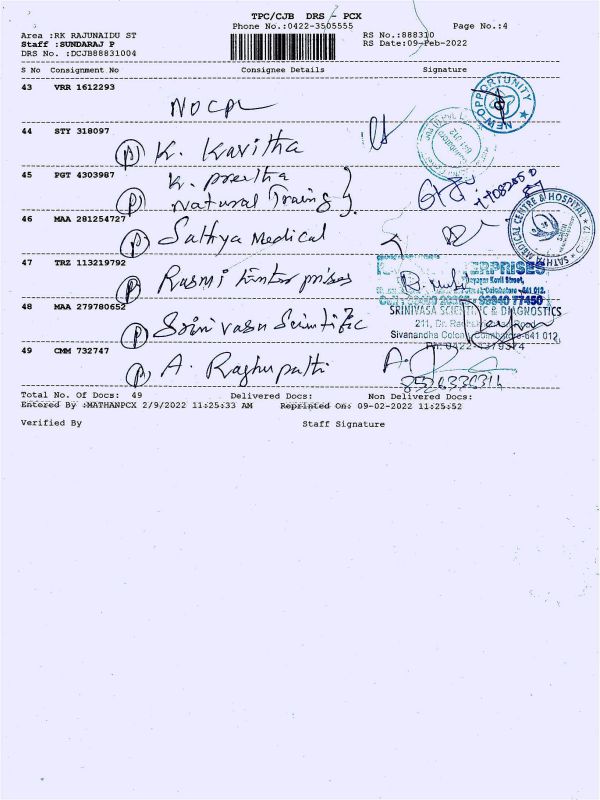 TPC/CJB DRS - PCX
Phone No.:0422-3505555 Page No.:4
Area :RK RAJUNAIDU ST RS No.:888310
Staff :SUNDARAJ P RS Date:09-Feb-2022
DRS No. :DCJB88831004
S No Consignment No Consignee Details Signature
43 VRR 1612293
NOCPL
NEW OPPORTUNITY
44 STY 318097
(P) K. Kavitha
641 012
45 PGT 4303987
K. Preetha
(P) Natural Traing
46 MAA 281254727
(P) Sathya Medical
SATHYA MEDICAL CENTRE & HOSPITAL
47 TRZ 113219792
(P) Rasmi Enterprises
ERPRISES
99940 77450
48 MAA 279780652
(P) Srinivasa Scientific
SRINIVASA SCIENTIFIC & DIAGNOSTICS
211, Dr. Road
Sivanandha Colony, Coimbatore-641 012.
Ph: 0422-4379374
49 CMM 732747
(P) A. Raghupathi
8526336311
Total No. Of Docs: 49 Delivered Docs: Non Delivered Docs:
Entered By :MATHANPCX 2/9/2022 11:25:33 AM Reprinted On: 09-02-2022 11:25:52
Verified By Staff Signature